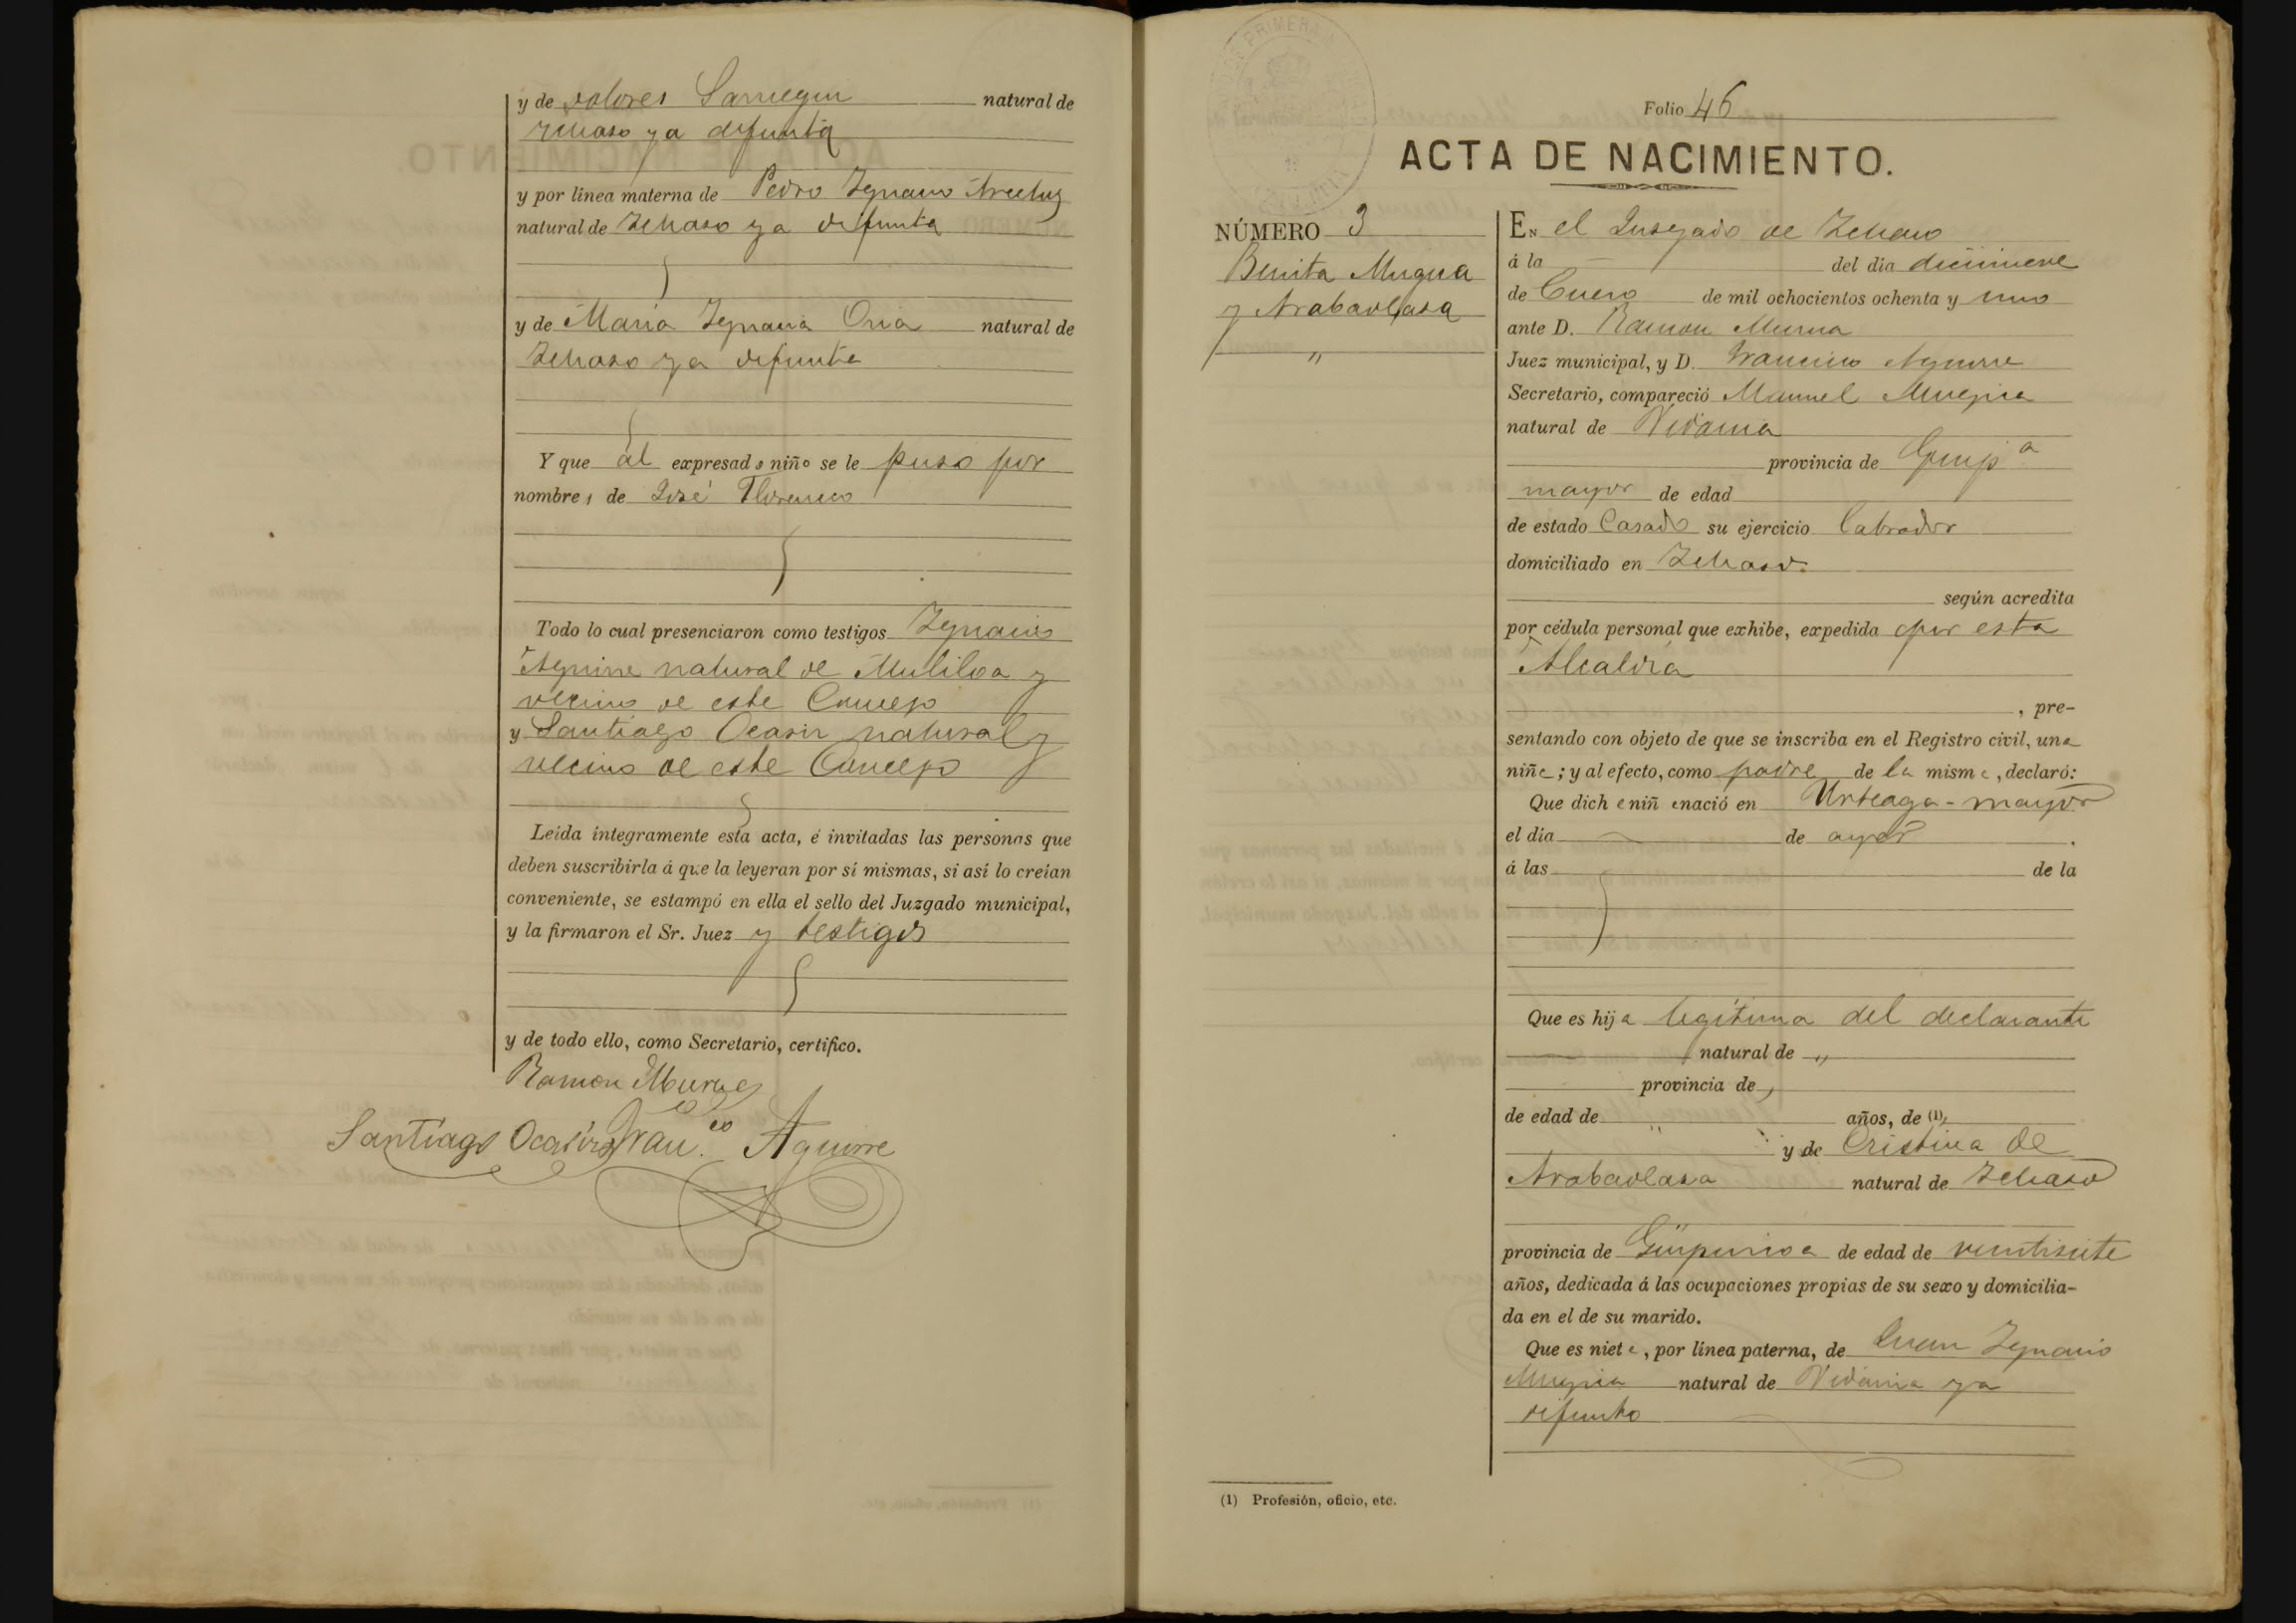 y de Dolores Larreguin natural de
Ichaso ya difunta
y por línea materna de Pedro Ygnacio Areitny
natural de Ichaso ya difunta
y de María Ygnacia Oria natural de
Ichaso ya difunta
Y que al expresado niño se le puso por
nombres de José Florencio
Todo lo cual presenciaron como testigos Ygnacio
Aguirre natural de Mutiloa y
vecino de este Concejo
y Santiago Ocariz natural y
vecino de este Concejo
Leída íntegramente esta acta, é invitadas las personas que
deben suscribirla á que la leyeran por sí mismas, si así lo creían
conveniente, se estampó en ella el sello del Juzgado municipal,
y la firmaron el Sr. Juez y testigos
y de todo ello, como Secretario, certifico.
Ramon Murua
Santiago Ocariz Fran.co Aguirre
Folio 46
ACTA DE NACIMIENTO.
NÚMERO 3
Benita Mugica
y Arabaolasa
"
EN el Jusgado de Ichaso
á la del día diecinueve
de Enero de mil ochocientos ochenta y uno
ante D. Ramon Murua
Juez municipal, y D. Francisco Aguirre
Secretario, compareció Manuel Mugica
natural de Vidania
provincia de Guipª
mayor de edad
de estado Casado su ejercicio labrador
domiciliado en Ichaso.
según acredita
por cédula personal que exhibe, expedida por esta
Alcaldía
, pre-
sentando con objeto de que se inscriba en el Registro civil, una
niña; y al efecto, como padre de la misma, declaró:
Que dicha niña nació en Urteaga-mayor
el día de ayer.
á las de la
Que es hija legítima del declarante
natural de "
provincia de
de edad de " años, de (1)
y de Cristina de
Arabaolasa natural de Ichaso
provincia de Guipuzcoa de edad de veintisiete
años, dedicada á las ocupaciones propias de su sexo y domicilia-
da en el de su marido.
Que es nieta, por línea paterna, de Juan Ygnacio
Mugica natural de Vidania ya
difunto
(1) Profesión, oficio, etc.